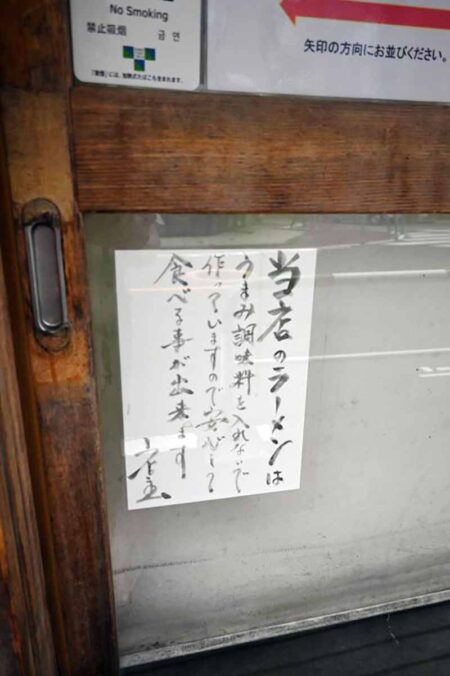 No Smoking
禁止吸烟 금연
「喫煙」には、加熱式たばこも含まれます。
矢印の方向にお並びください。
当店のラーメンは
うまみ調味料を入れないで
作っていますので安心して
食べる事が出来ます
店主